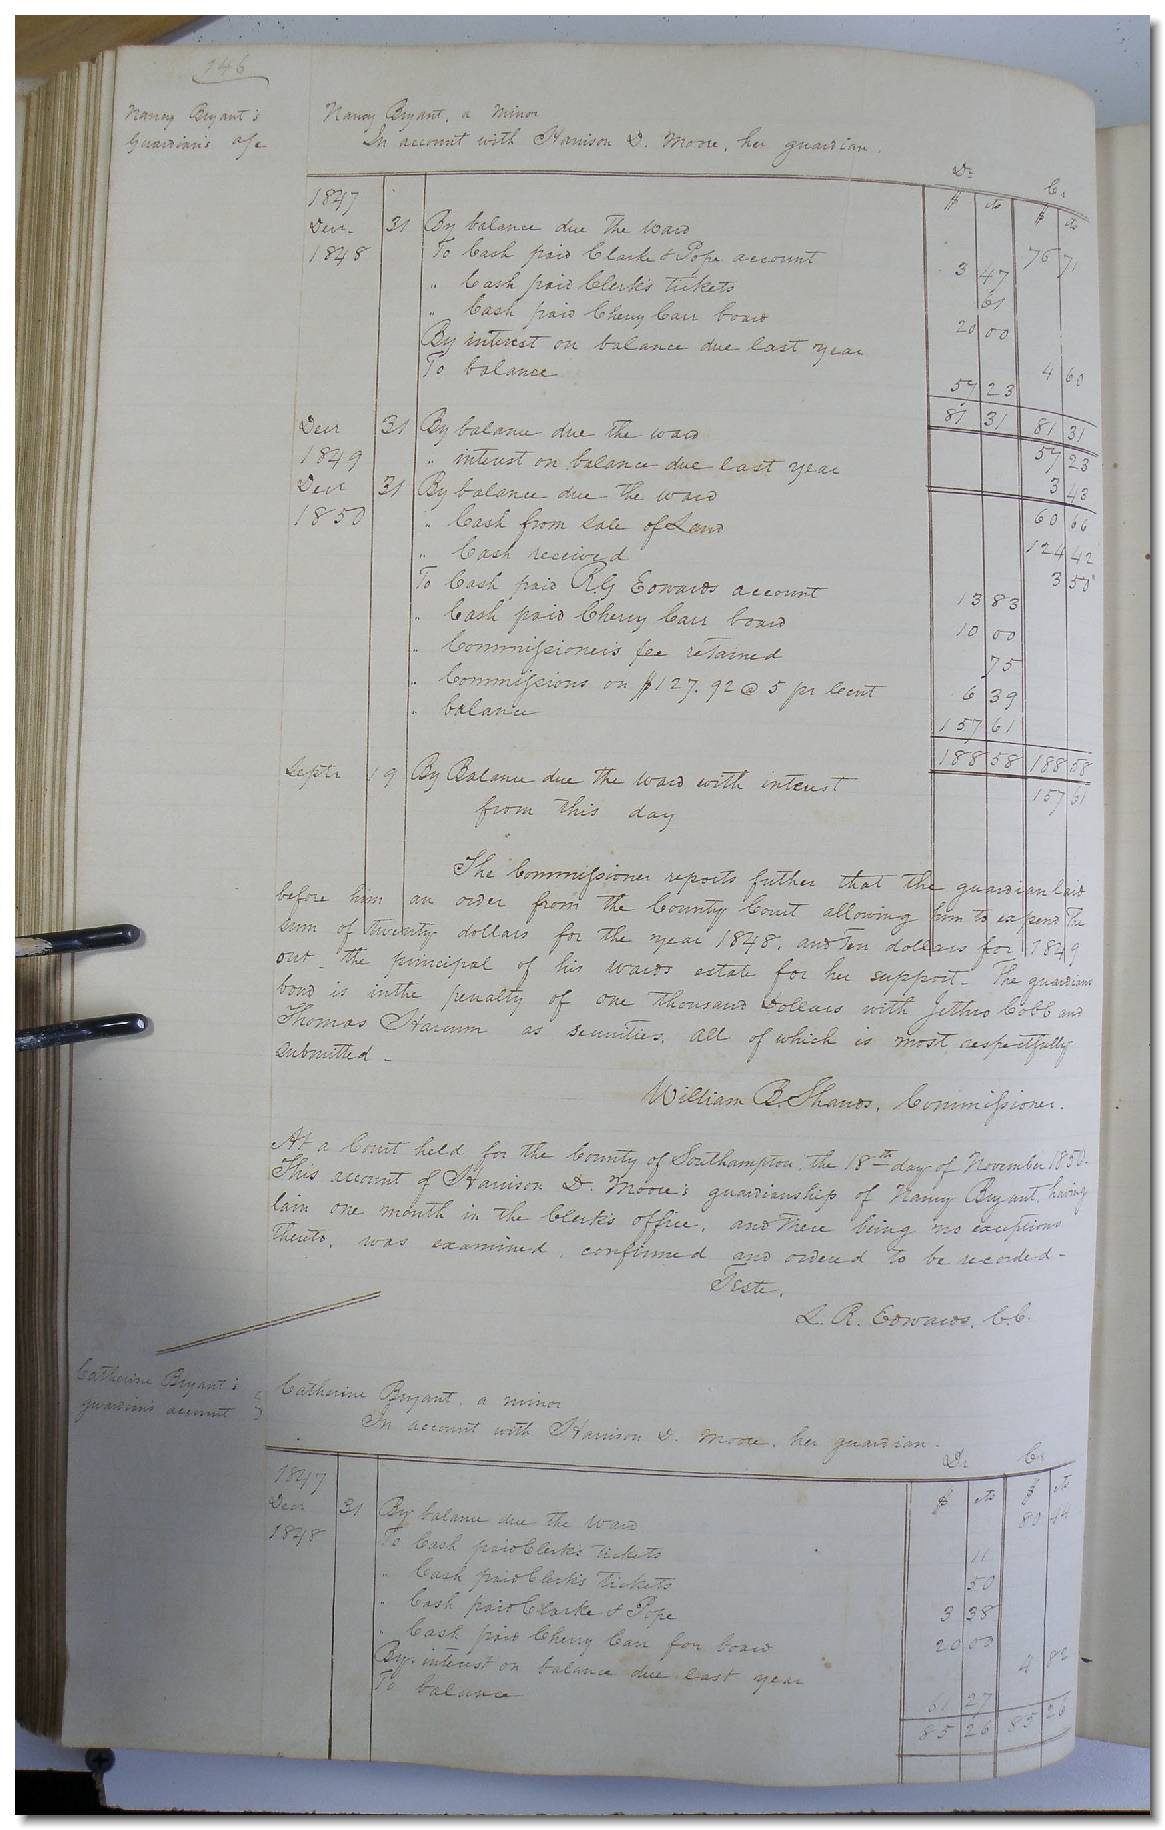 146
Nancy Bryant's
Guardian's a/c
Nancy Bryant, a minor
In account with Harrison D. Moore, her guardian.
Dr Cr
$ cts $ cts
1847
Decr 31 By balance due the ward 76 71
1848 To Cash paid Clarke & Pope account 3 47
" Cash paid Clerk's tickets 61
" Cash paid Cherry Carr board 20 00
By interest on balance due last year 4 60
To balance 57 23
81 31 81 31
Decr 31 By balance due the ward 57 23
1849 " interest on balance due last year 3 43
Decr 31 By balance due the ward 60 66
1850 " Cash from sale of Land 124 42
" Cash received 3 50
To Cash paid R.G Edwards account 13 83
" Cash paid Cherry Carr board 10 00
" Commissioner's fee retained 75
" Commissions on $127.92 @ 5 pr Cent 6 39
" balance 157 61
188 58 188 58
Septr 19 By Balance due the ward with interest 157 61
from this day
The Commissioner reports futher that the guardian laid
before him an order from the County Court allowing him to expend the
sum of twenty dollars for the year 1848, and ten dollars for 1849
out the principal of his wards estate for her support. The guardians
bond is in the penalty of one thousand Dollars with Jethro Cobb and
Thomas as securities, all of which is most respectfully
submitted -
William B. Shands, Commissioner.
At a Court held for the County of Southampton the 18th day of November 1850.
This account of Harrison D. Moore's guardianship of Nancy Bryant, having
lain one month in the Clerk's office, and there being no exceptions
thereto, was examined, confirmed and ordered to be recorded -
Teste,
L. R. Edwards, C.C.
Catherine Bryant's
guardian's account
Catherine Bryant, a minor
In account with Harrison D. Moore, her guardian.
Dr Cr
$ cts $ cts
1847
Decr 31 By balance due the ward 80 44
1848 To Cash paid Clerk's tickets 11
" Cash paid Clerk's tickets 50
" Cash paid Clarke & Pope 3 38
" Cash paid Cherry Carr for board 20 00
By interest on balance due last year 4 82
To balance 61 27
85 26 85 26